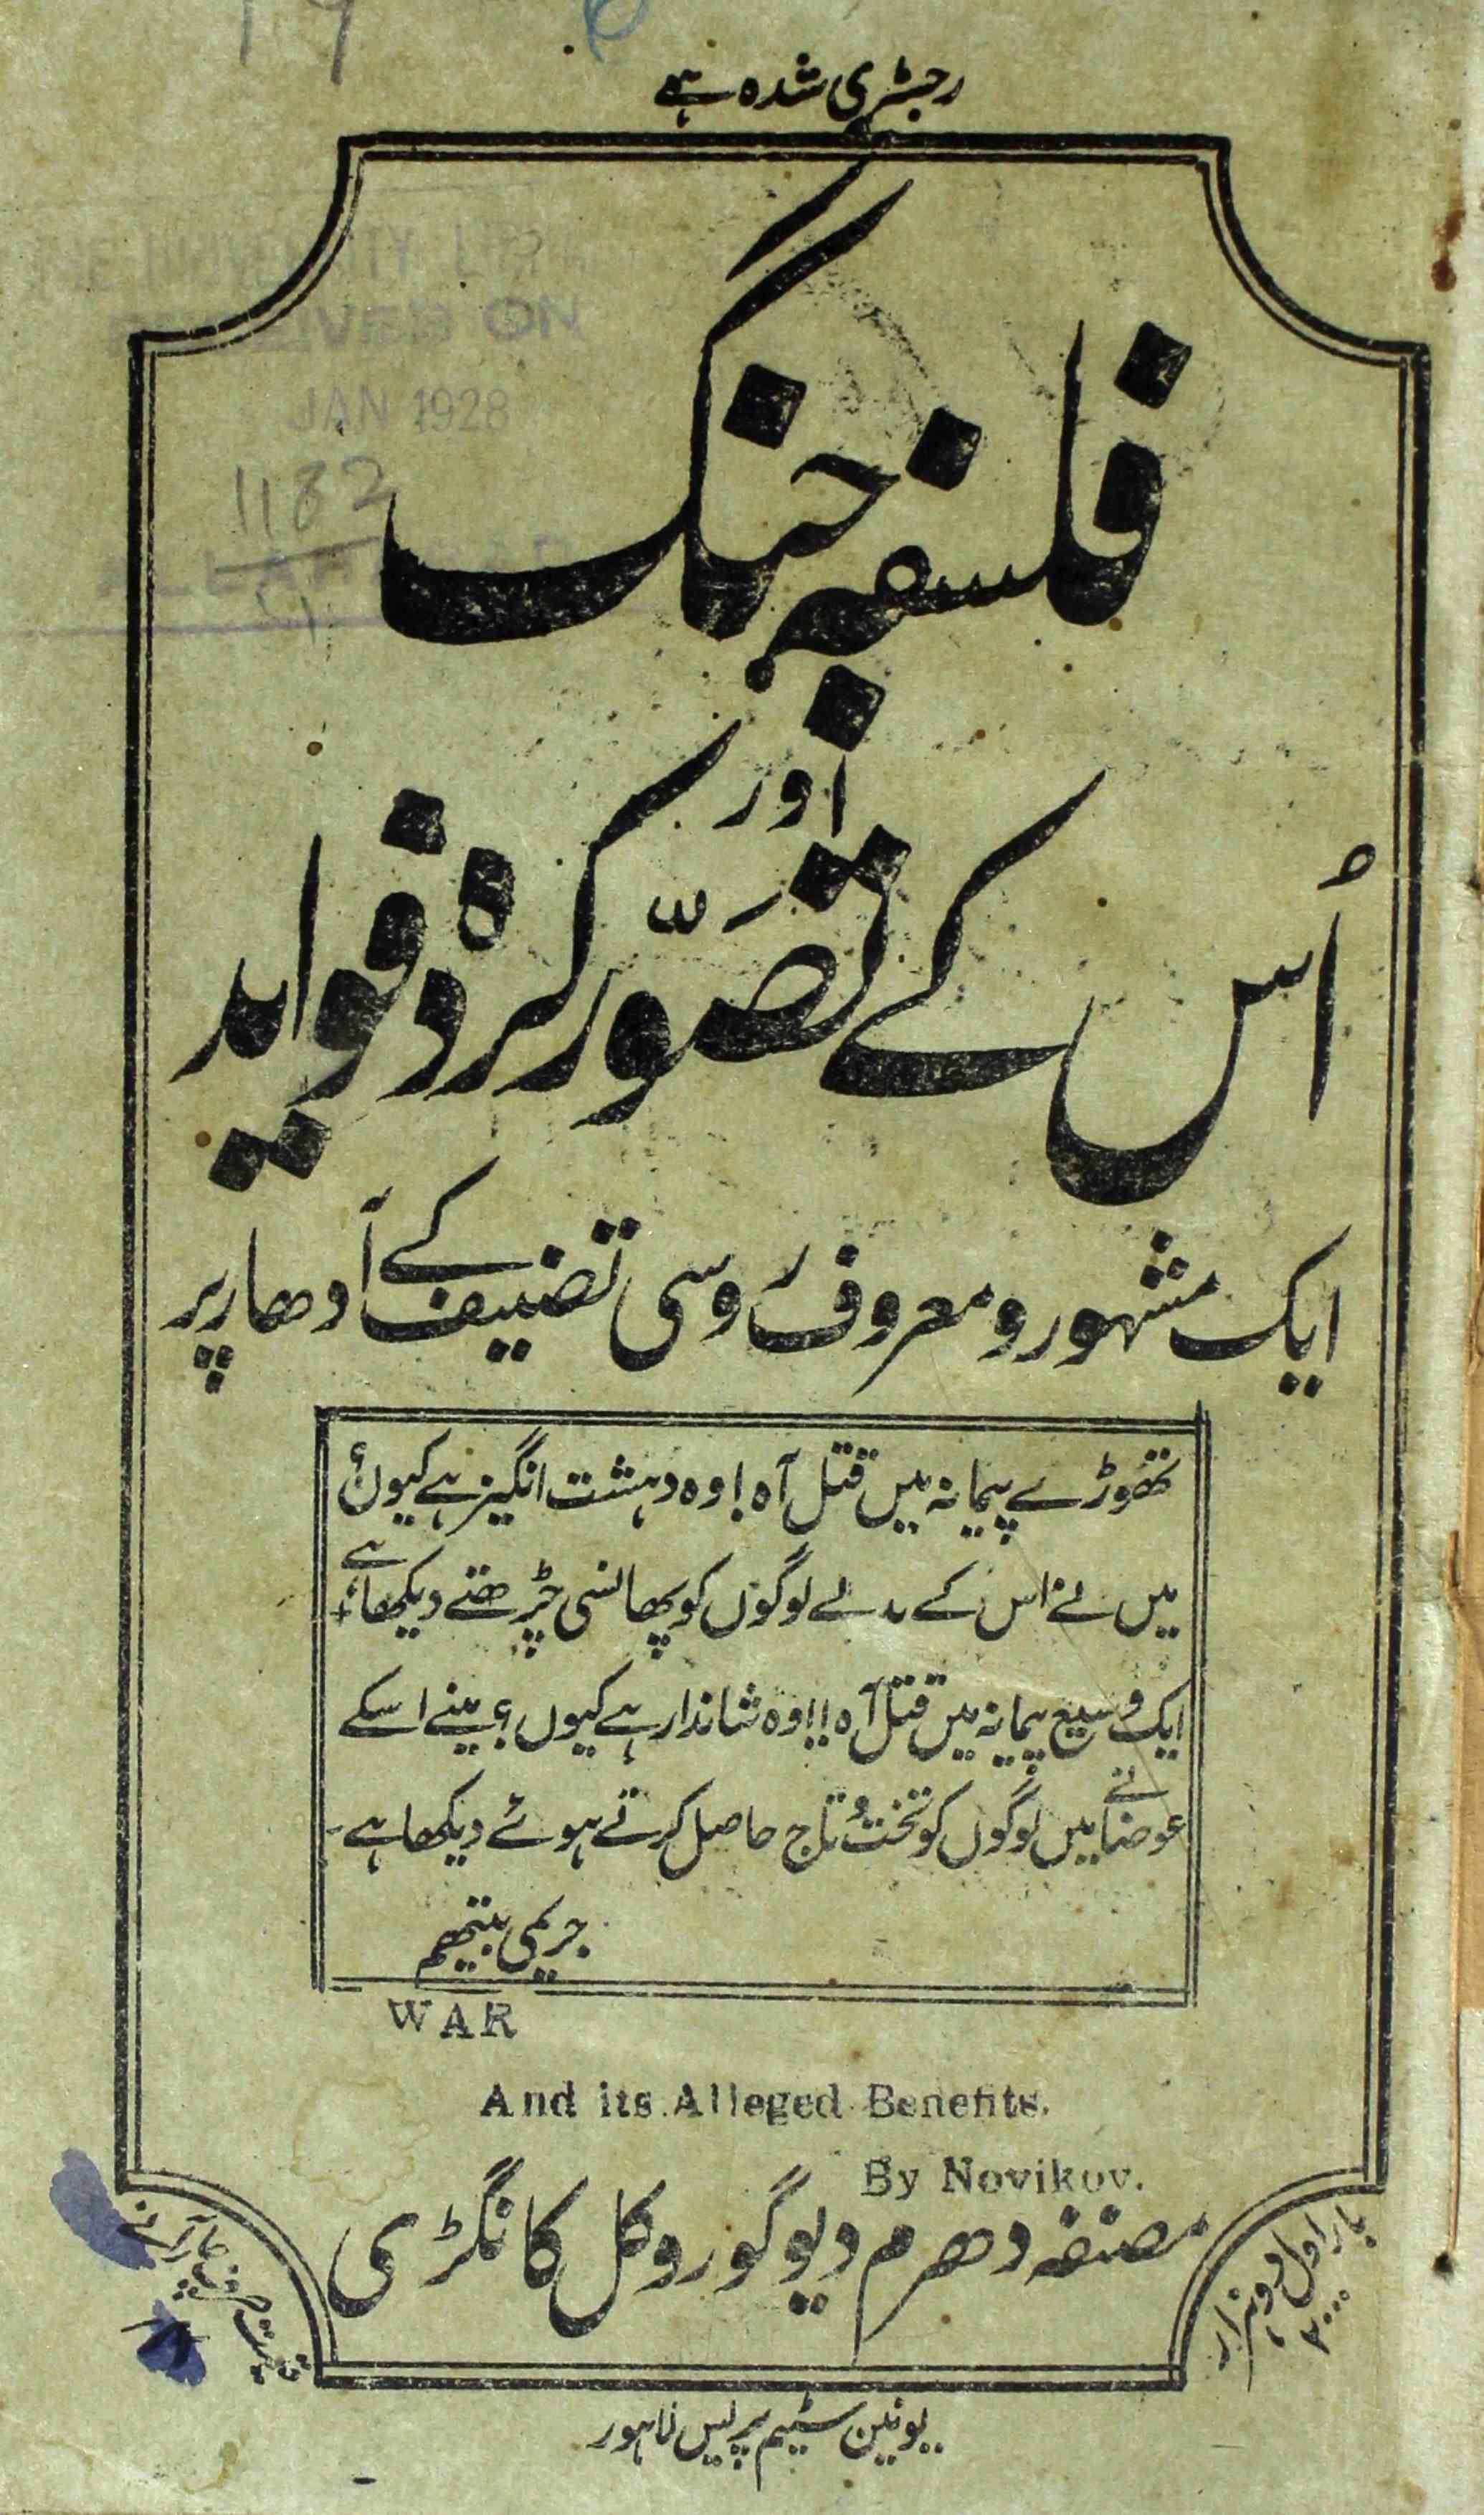 رجسٹری شدہ ہے
فلسفہ جنگ
اور
اُس کے تصوّر کردہ فواید
ایک مشہور و معروف رُوسی تصنیف کے آدھار پر
تھوڑے پیمانہ میں قتل آہ! وہ دہشت انگیز ہے کیوں؟
میں نے اس کے بدلے لوگوں کو پھانسی چڑھتے دیکھا ہے
ایک وسیع پیمانہ میں قتل آہ!! وہ شاندار ہے کیوں؟ مینے اسکے
عوضانے میں لوگوں کو تخت و تاج حاصل کرتے ہوئے دیکھا ہے۔
جریمی بینتھم
WAR
And its Alleged Benefits.
By Novikov.
مصنفہ دھرم دیو گوروکل کانگڑی
بار اول دو ہزار
۲۰۰۰
قیمت صرف چار آنے
یونین سٹیم پریس لاہور
ON
JAN 1928
1182